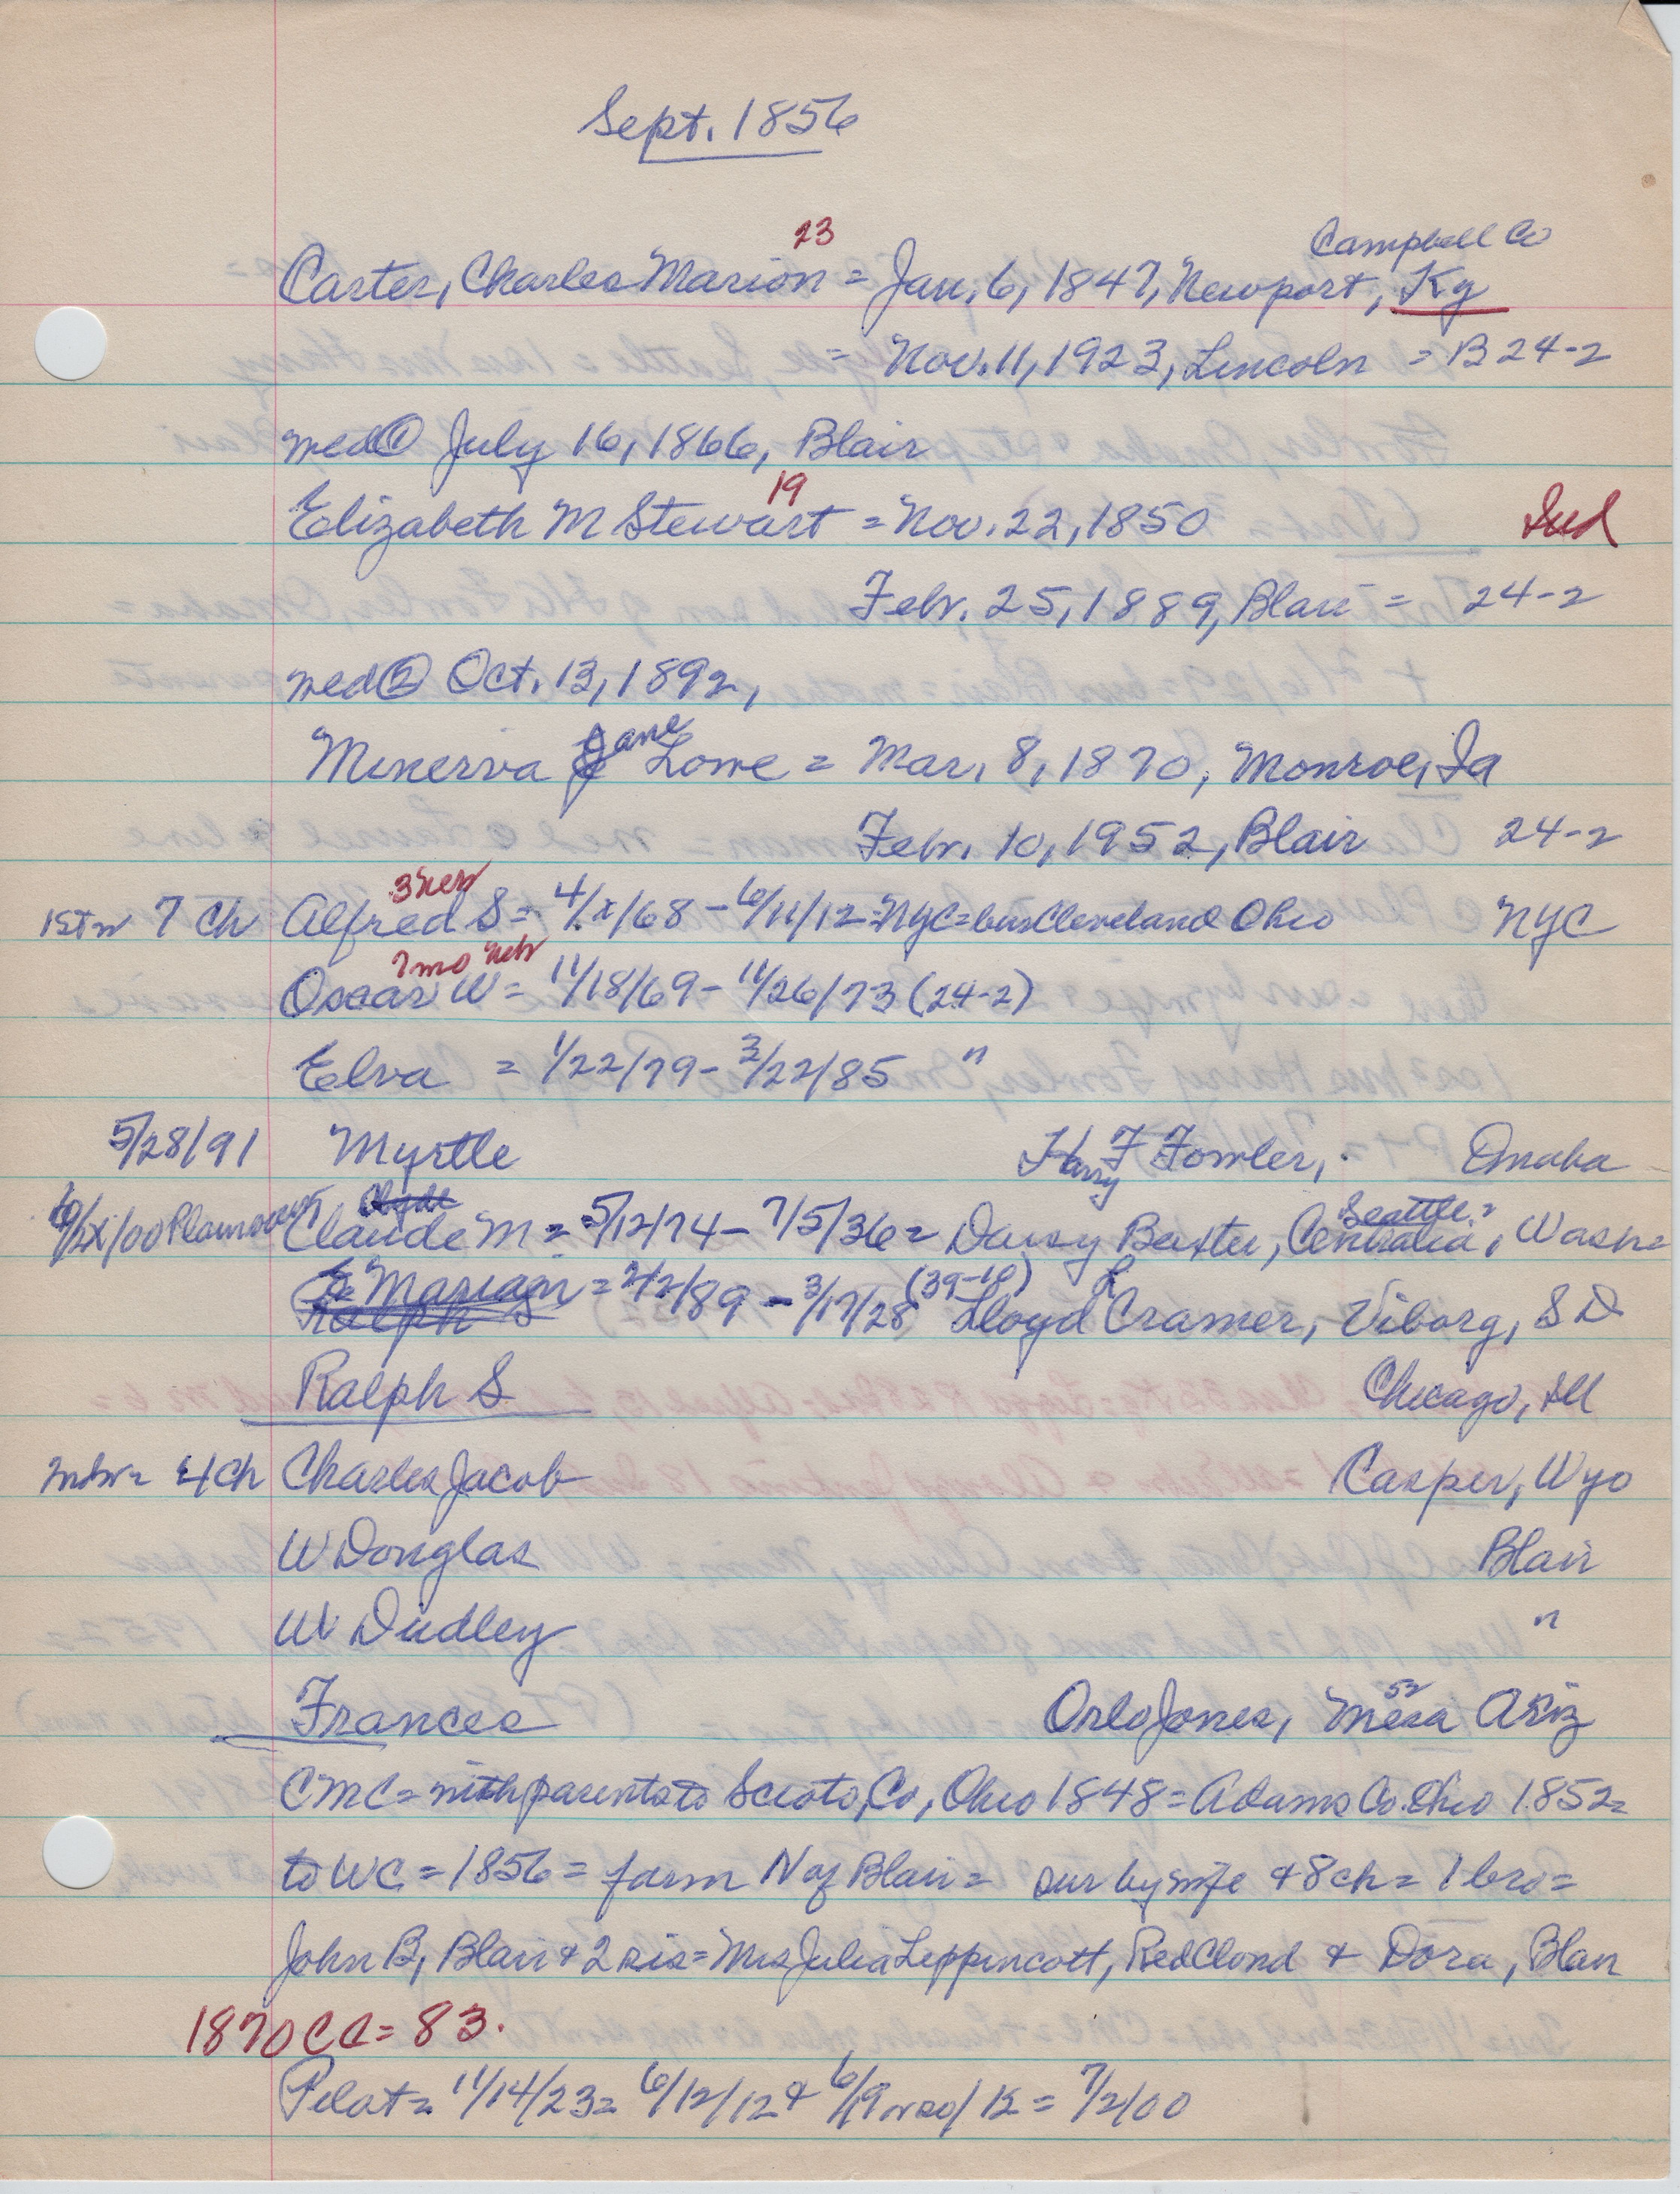 Sept. 1856
23
Campbell Co
Carter, Charles Marion = Jan. 6, 1847, Newport, Ky
= Nov. 11, 1923, Lincoln = B 24-2
med ① July 16, 1866, Blair
19
Elizabeth M Stewart = Nov. 22, 1850 Ind
Febr. 25, 1889, Blair = 24-2
med ② Oct. 13, 1892,
Minerva Jane Lowe = Mar. 8, 1870, Monroe, Ia
Febr. 10, 1952, Blair 24-2
3 Neb
1st w 7 Ch Alfred S = 4/x/68 - 6/11/12 = NYC = bur Cleveland Ohio NYC
7 mo Neb
Oscar W = 11/18/69 - 11/26/73 (24-2)
Elva = 1/22/79 - 3/22/85 "
5/28/91 Myrtle Harry F Fowler, Omaha
Clyde Seattle =
/00 Claude M = 5/12/74 - 7/5/36 = Daisy Baxter, Centralia, Wash =
E Marian = 2/2/89 - 3/17/28 (39-10) Lloyd L Cramer, Viborg, S D
Ralph S
Ralph S Chicago, Ill
4 Ch Charles Jacob Casper, Wyo
W Douglas Blair
W Dudley "
Frances Orlo Jones, Mesa 52 Ariz
CMC = with parents to Scioto, Co, Ohio 1848 = Adams Co. Ohio 1852 =
to WC = 1856 = farm N of Blair = sur by wife + 8 ch = 1 bro =
John B, Blair + 2 sis = Mrs Julia Lippincott, Red Cloud + Dora, Blair
1870 CC = 83.
Pilot = 11/14/23 = 6/12/12 + 6/19 = 7/2/00